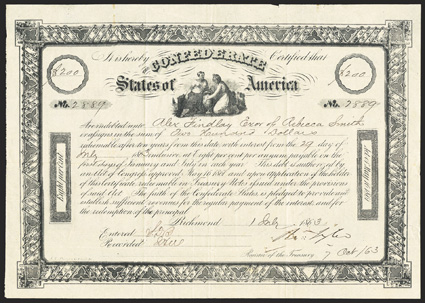 It is hereby Certified that
CONFEDERATE
$200 $200
States of America
No. 2889 No. 2889
are indebted unto Alex Findlay Exor of Rebecca Smith
or assigns in the sum of Two Hundred Dollars
redeemable after ten years from this date with interest from the 29 day of
inclusive at Eight per cent per annum payable on the
first days of January and July in each year. This debt is authorized by
an Act of Congress approved May 16 1861 and upon application of the holder
of this Certificate redeemable in Treasury Notes issued under the provisions
of said Act. The faith of the Confederate States is pledged to provide and
establish sufficient revenues for the regular payment of the interest, and for
the redemption of the principal
Richmond 1 July 1863
Entered
Recorded
Register of the Treasury 7 Oct /63
Eight per cent